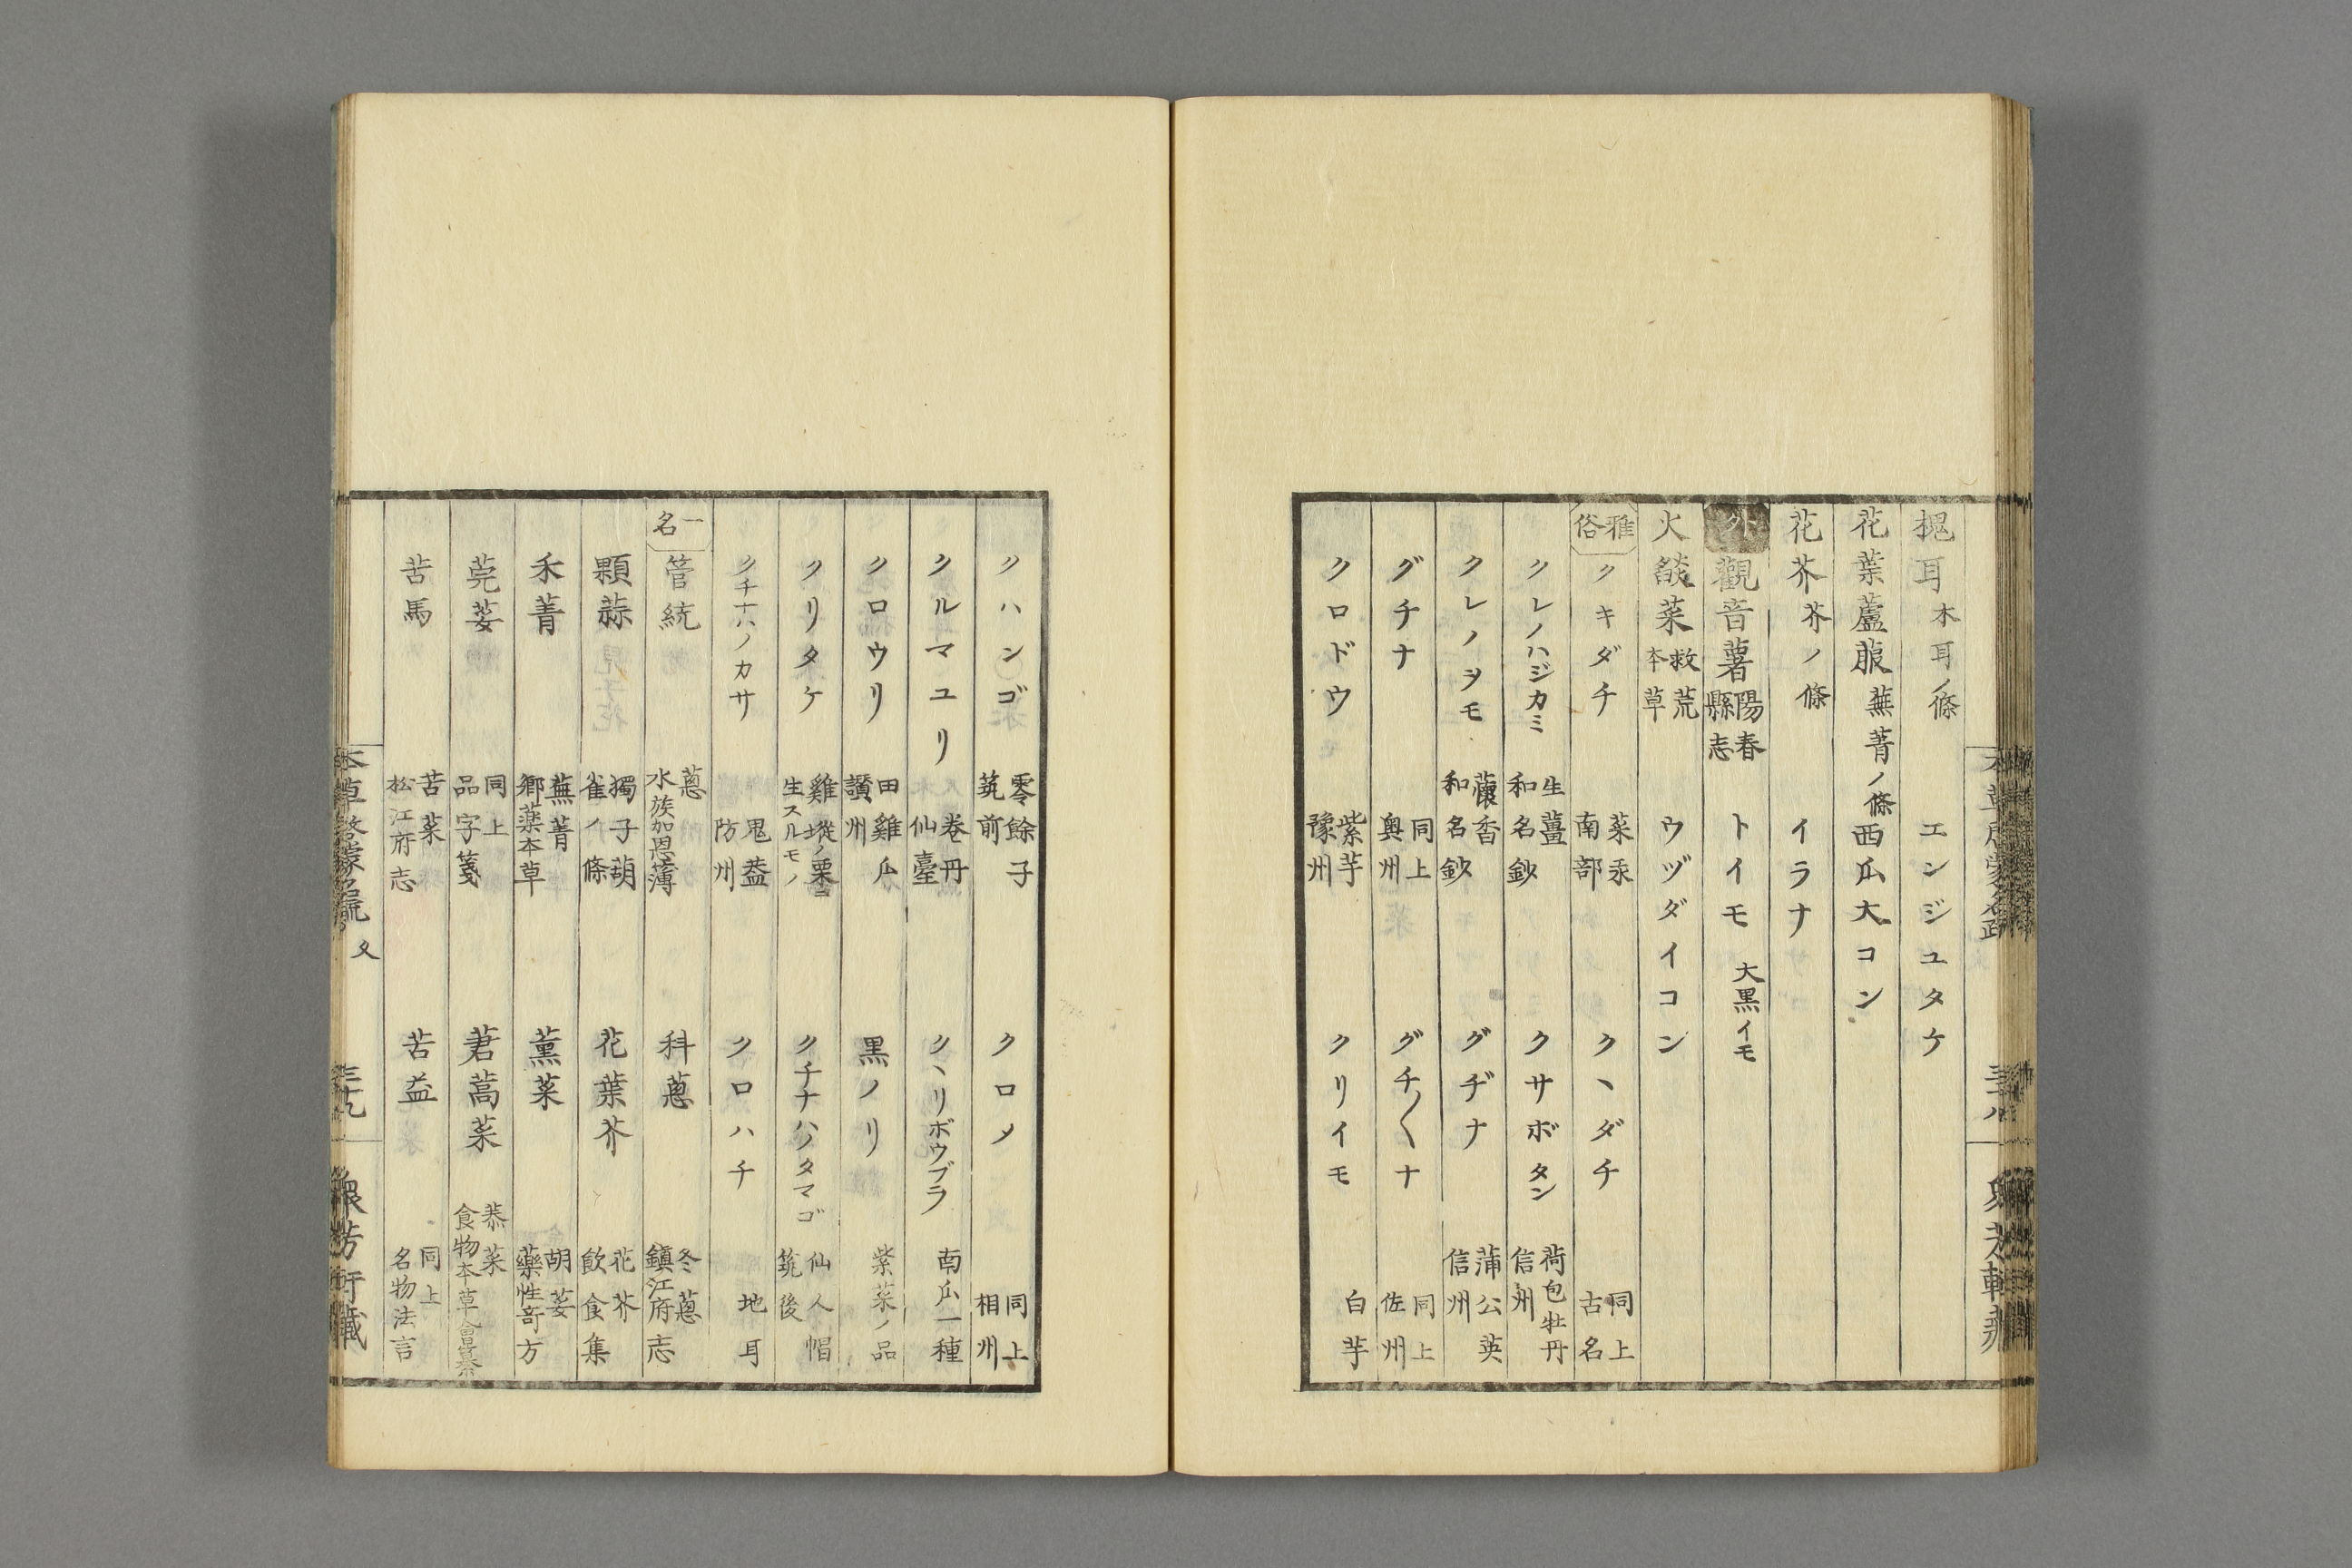 槐耳 木耳ノ條 エンジユタケ
花葉蘆菔 蕪菁ノ條 西瓜大コン
花芥 芥ノ條 イラナ
外 觀音薯 陽春縣志 トイモ 大黒イモ
火燄菜 救荒本草 ウヅダイコン
雅俗 クキダチ 菜永 南部 クヽダチ 同上 古名
クレノハジカミ 生薑 和名鈔 クサボタン 荷包牡丹 信州
クレノヲモ 蘹香 和名鈔 グヂナ 蒲公英 信州
グチナ 同上 奥州 グチ〱ナ 同上 佐州
クロドウ 紫芋 豫州 クリイモ 白芋
クハンゴ 零餘子 筑前 クロメ 同上 相州
クルマユリ 巻丹 仙臺 クヽリボウブラ 南瓜一種
クロウリ 田雞瓜 讃州 黒ノリ 紫菜ノ品
クリタケ 雞㙡ノ栗ニ生スルモノ クチナハノタマゴ 仙人帽 筑後
クチナハノカサ 鬼蓋 防州 クロハチ 地耳
一名 菅統 蔥 水族加恩薄 科蔥 冬蔥 鎮江府志
顆蒜 獨子葫 雀ノ條 花葉芥 花芥 飲食集
禾菁 蕪菁 郷藥本草 薫菜 胡荽 藥性竒方
莞荽 同上 品字箋 莙蒿菜 菾菜 食物本草會纂
苦馬 苦菜 松江府志 苦益 同上 名物法言
本草啓蒙名疏 ク 三十九 衆芳軒藏